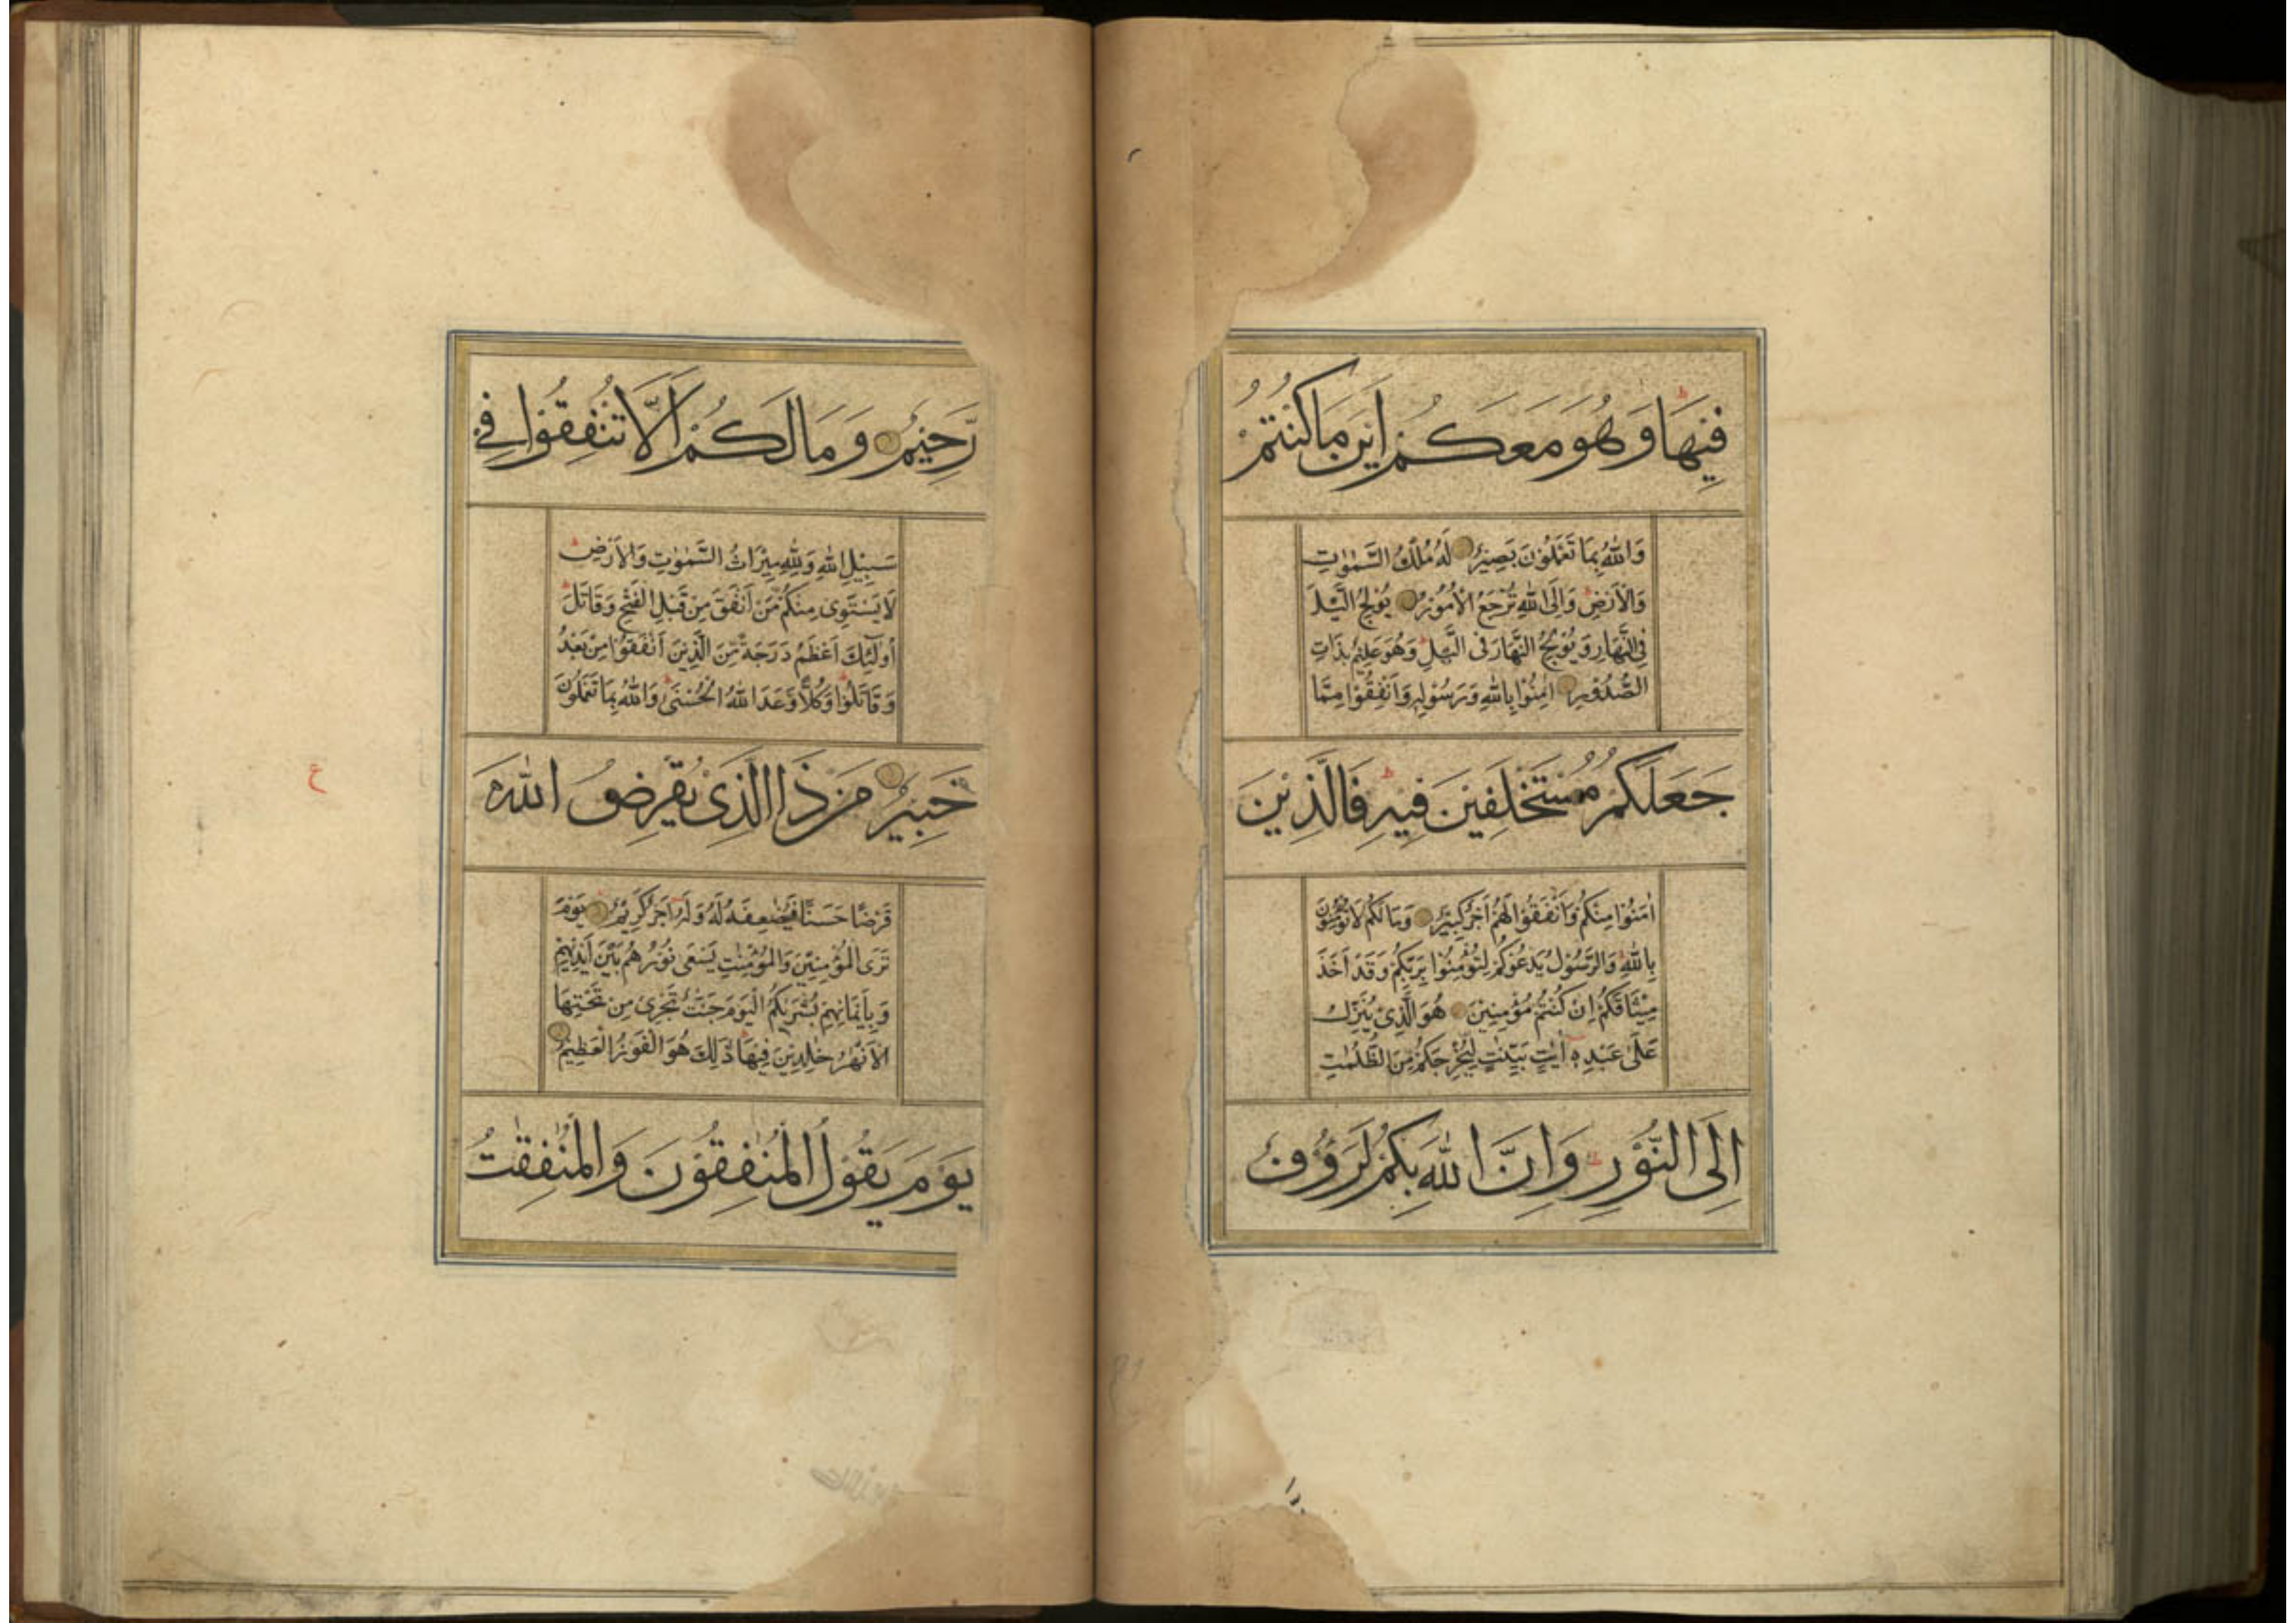 فِيْهَا وَهُوَ مَعَكُمْ اَيْنَ مَا كُنْتُمْ
وَاللّٰهُ بِمَا تَعْمَلُوْنَ بَصِيْرٌ لَهُ مُلْكُ السَّمٰوٰتِ
وَالْاَرْضِ وَاِلَى اللّٰهِ تُرْجَعُ الْاُمُوْرُ يُوْلِجُ الَّيْلَ
فِى النَّهَارِ وَيُوْلِجُ النَّهَارَ فِى الَّيْلِ وَهُوَ عَلِيْمٌ بِذَاتِ
الصُّدُوْرِ اٰمِنُوْا بِاللّٰهِ وَرَسُوْلِهٖ وَاَنْفِقُوْا مِمَّا
جَعَلَكُمْ مُسْتَخْلَفِيْنَ فِيْهِ فَالَّذِيْنَ
اٰمَنُوْا مِنْكُمْ وَاَنْفَقُوْا لَهُمْ اَجْرٌ كَبِيْرٌ وَمَا لَكُمْ لَا تُؤْمِنُوْنَ
بِاللّٰهِ وَالرَّسُوْلُ يَدْعُوْكُمْ لِتُؤْمِنُوْا بِرَبِّكُمْ وَقَدْ اَخَذَ
مِيْثَاقَكُمْ اِنْ كُنْتُمْ مُؤْمِنِيْنَ هُوَ الَّذِىْ يُنَزِّلُ
عَلٰى عَبْدِهٖ اٰيٰتٍ بَيِّنٰتٍ لِيُخْرِجَكُمْ مِنَ الظُّلُمٰتِ
اِلَى النُّوْرِ وَاِنَّ اللّٰهَ بِكُمْ لَرَؤُفٌ
رَّحِيْمٌ وَمَا لَكُمْ اَلَّا تُنْفِقُوْا فِيْ
سَبِيْلِ اللّٰهِ وَلِلّٰهِ مِيْرَاثُ السَّمٰوٰتِ وَالْاَرْضِ
لَا يَسْتَوِى مِنْكُمْ مَّنْ اَنْفَقَ مِنْ قَبْلِ الْفَتْحِ وَقَاتَلَ
اُولٰٓئِكَ اَعْظَمُ دَرَجَةً مِّنَ الَّذِيْنَ اَنْفَقُوْا مِنْ بَعْدُ
وَقَاتَلُوْا وَكُلًّا وَعَدَ اللّٰهُ الْحُسْنٰى وَاللّٰهُ بِمَا تَعْمَلُوْنَ
خَبِيْرٌ مَنْ ذَا الَّذِىْ يُقْرِضُ اللّٰهَ
ع
قَرْضًا حَسَنًا فَيُضٰعِفَهُ لَهُ وَلَهُ اَجْرٌ كَرِيْمٌ يَوْمَ
تَرَى الْمُؤْمِنِيْنَ وَالْمُؤْمِنٰتِ يَسْعٰى نُوْرُهُمْ بَيْنَ اَيْدِيْهِمْ
وَبِاَيْمَانِهِمْ بُشْرٰيكُمُ الْيَوْمَ جَنّٰتٌ تَجْرِىْ مِنْ تَحْتِهَا
الْاَنْهٰرُ خٰلِدِيْنَ فِيْهَا ذٰلِكَ هُوَ الْفَوْزُ الْعَظِيْمُ
يَوْمَ يَقُوْلُ الْمُنٰفِقُوْنَ وَالْمُنٰفِقٰتُ